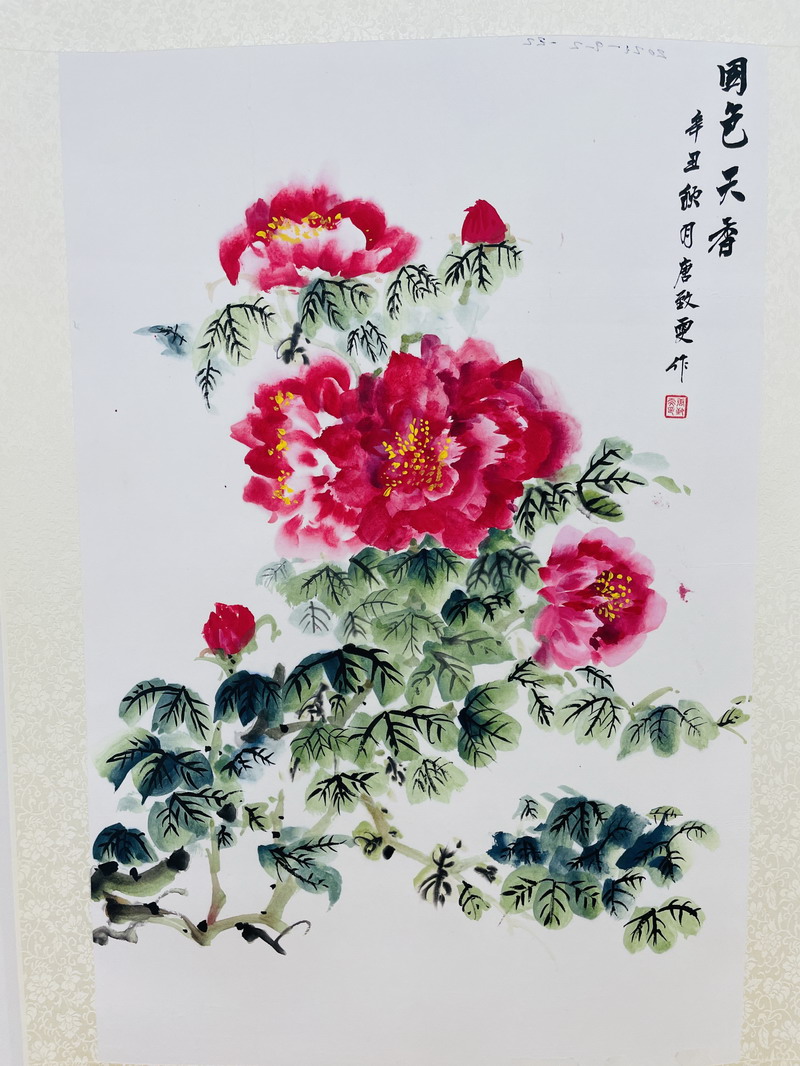 國色天香
辛丑秋月唐致更作
2021-9-2-22